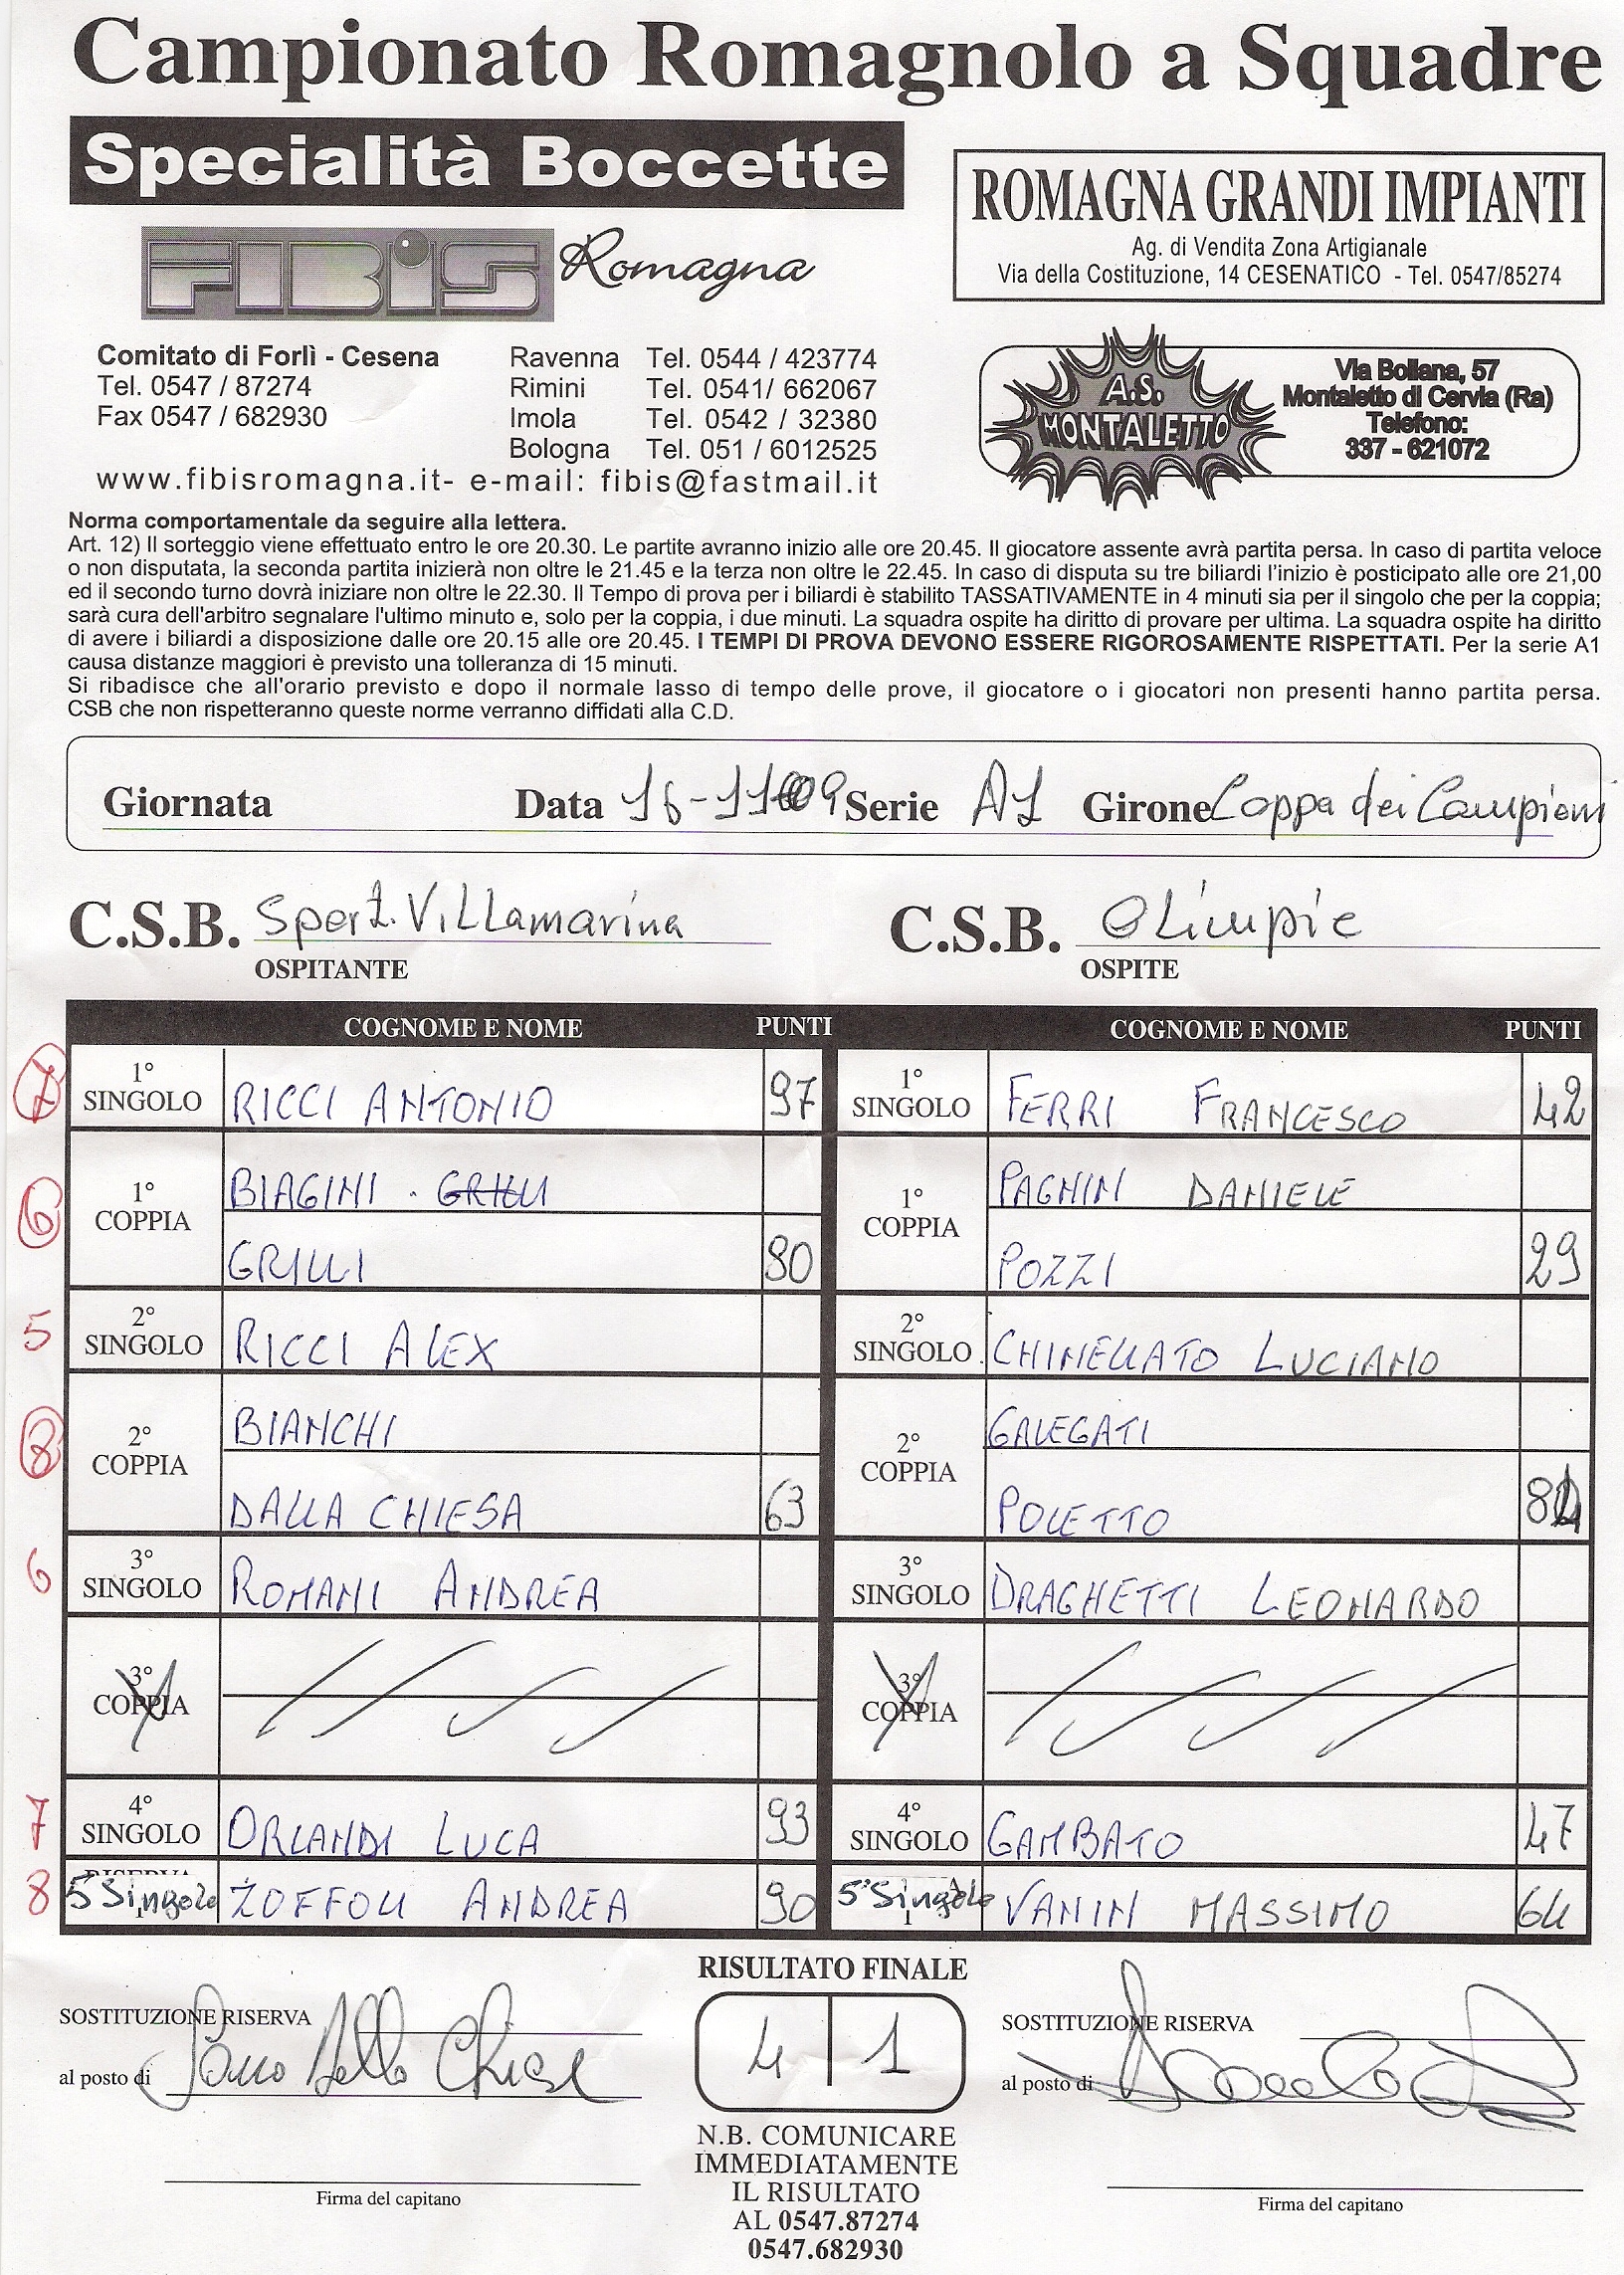 Campionato Romagnolo a Squadre
Specialità Boccette
ROMAGNA GRANDI IMPIANTI
Ag. di Vendita Zona Artigianale
Via della Costituzione, 14 CESENATICO - Tel. 0547/85274
FIBiS Romagna
Comitato di Forlì - Cesena
Tel. 0547 / 87274
Fax 0547 / 682930
Ravenna Tel. 0544 / 423774
Rimini Tel. 0541/ 662067
Imola Tel. 0542 / 32380
Bologna Tel. 051 / 6012525
www.fibisromagna.it- e-mail: fibis@fastmail.it
A.S.
MONTALETTO
Via Bollana, 57
Montaletto di Cervia (Ra)
Telefono:
337 - 621072
Norma comportamentale da seguire alla lettera.
Art. 12) Il sorteggio viene effettuato entro le ore 20.30. Le partite avranno inizio alle ore 20.45. Il giocatore assente avrà partita persa. In caso di partita veloce
o non disputata, la seconda partita inizierà non oltre le 21.45 e la terza non oltre le 22.45. In caso di disputa su tre biliardi l'inizio è posticipato alle ore 21,00
ed il secondo turno dovrà iniziare non oltre le 22.30. Il Tempo di prova per i biliardi è stabilito TASSATIVAMENTE in 4 minuti sia per il singolo che per la coppia;
sarà cura dell'arbitro segnalare l'ultimo minuto e, solo per la coppia, i due minuti. La squadra ospite ha diritto di provare per ultima. La squadra ospite ha diritto
di avere i biliardi a disposizione dalle ore 20.15 alle ore 20.45. I TEMPI DI PROVA DEVONO ESSERE RIGOROSAMENTE RISPETTATI. Per la serie A1
causa distanze maggiori è previsto una tolleranza di 15 minuti.
Si ribadisce che all'orario previsto e dopo il normale lasso di tempo delle prove, il giocatore o i giocatori non presenti hanno partita persa.
CSB che non rispetteranno queste norme verranno diffidati alla C.D.
Giornata Data 16-11-09 Serie A1 Girone Coppa dei Campioni
C.S.B. Sport. Villamarina C.S.B. Olimpie
OSPITANTE OSPITE
COGNOME E NOME PUNTI COGNOME E NOME PUNTI
7 1° SINGOLO RICCI ANTONIO 97 1° SINGOLO FERRI FRANCESCO 42
6 1° COPPIA BIAGINI . GRILLI 1° COPPIA PAGNIN DANIELE
GRILLI 80 POZZI 29
5 2° SINGOLO RICCI ALEX 2° SINGOLO CHINELLATO LUCIANO
8 2° COPPIA BIANCHI 2° COPPIA GALEGATI
DALLA CHIESA 63 POLETTO
6 3° SINGOLO ROMANI ANDREA 3° SINGOLO DRAGHETTI LEONARDO
3° COPPIA 3° COPPIA
7 4° SINGOLO ORLANDI LUCA 93 4° SINGOLO GAMBATO 47
8 5° Singolo ZOFFOLI ANDREA 90 5° Singolo VANIN MASSIMO 64
RISULTATO FINALE
4 1
SOSTITUZIONE RISERVA SOSTITUZIONE RISERVA
al posto di al posto di
Firma del capitano Firma del capitano
N.B. COMUNICARE
IMMEDIATAMENTE
IL RISULTATO
AL 0547.87274
0547.682930